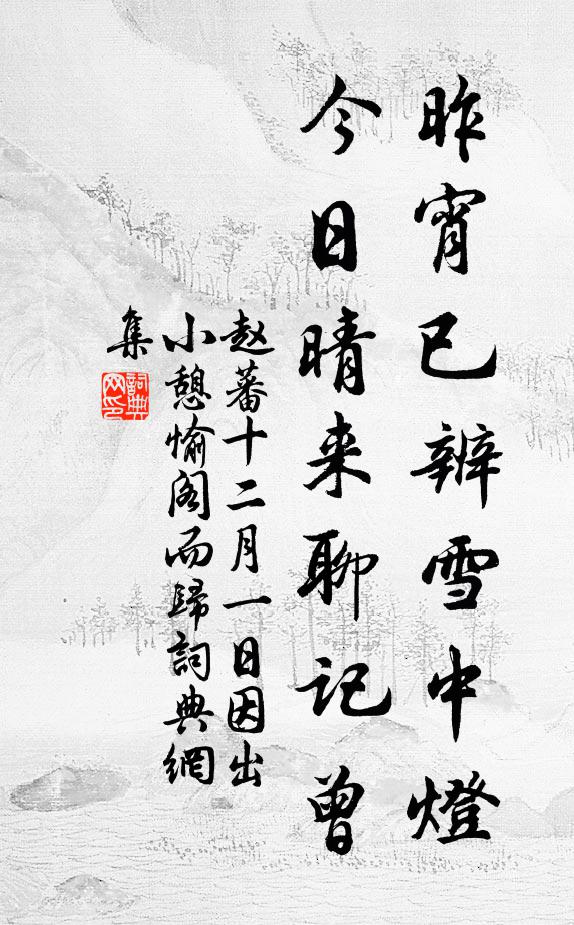 昨宵已辨雪中燈
今日晴来聊记曾
赵蕃十二月一日因出
小憩愉阁而歸詞典網
集
詞典
网印